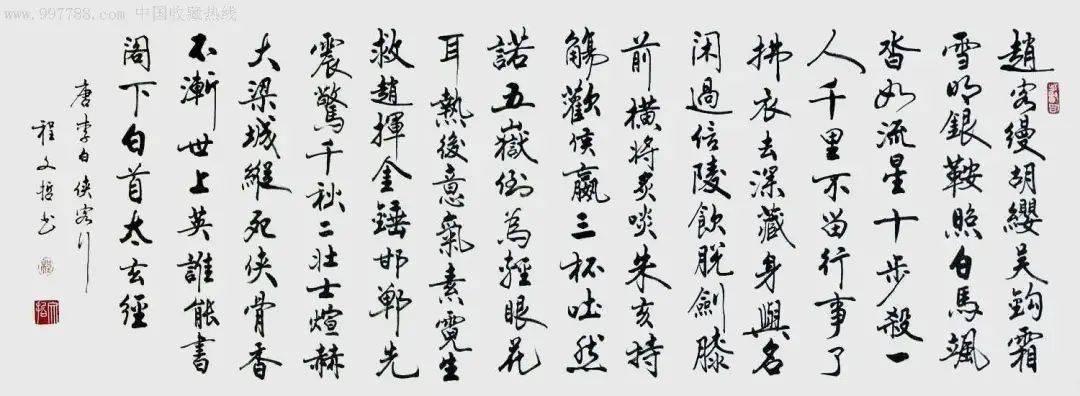 www.997788.com 中国收藏热线
趙客縵胡纓吳鉤霜
雪明銀鞍照白馬颯
沓如流星十步殺一
人千里不留行事了
拂衣去深藏身與名
閑過信陵飲脫劍膝
前橫將炙啖朱亥持
觴勸侯嬴三杯吐然
諾五嶽倒為輕眼花
耳熱後意氣素霓生
救趙揮金錘邯鄲先
震驚千秋二壯士煊赫
大梁城縱死俠骨香
不慚世上英誰能書
閣下白首太玄經
唐李白俠客行
程文哲書